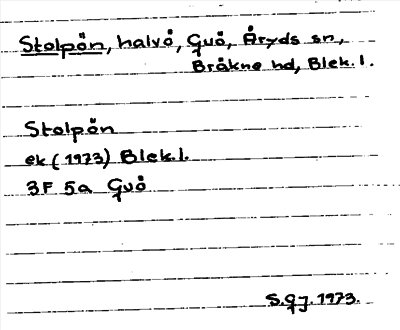 Stolpön, halvö, Guö, Åryds sn,
Bräkne hd, Blek.l.
Stolpön
ek (1973) Blek.l.
3F 5a Guö
S.Gj. 1973.